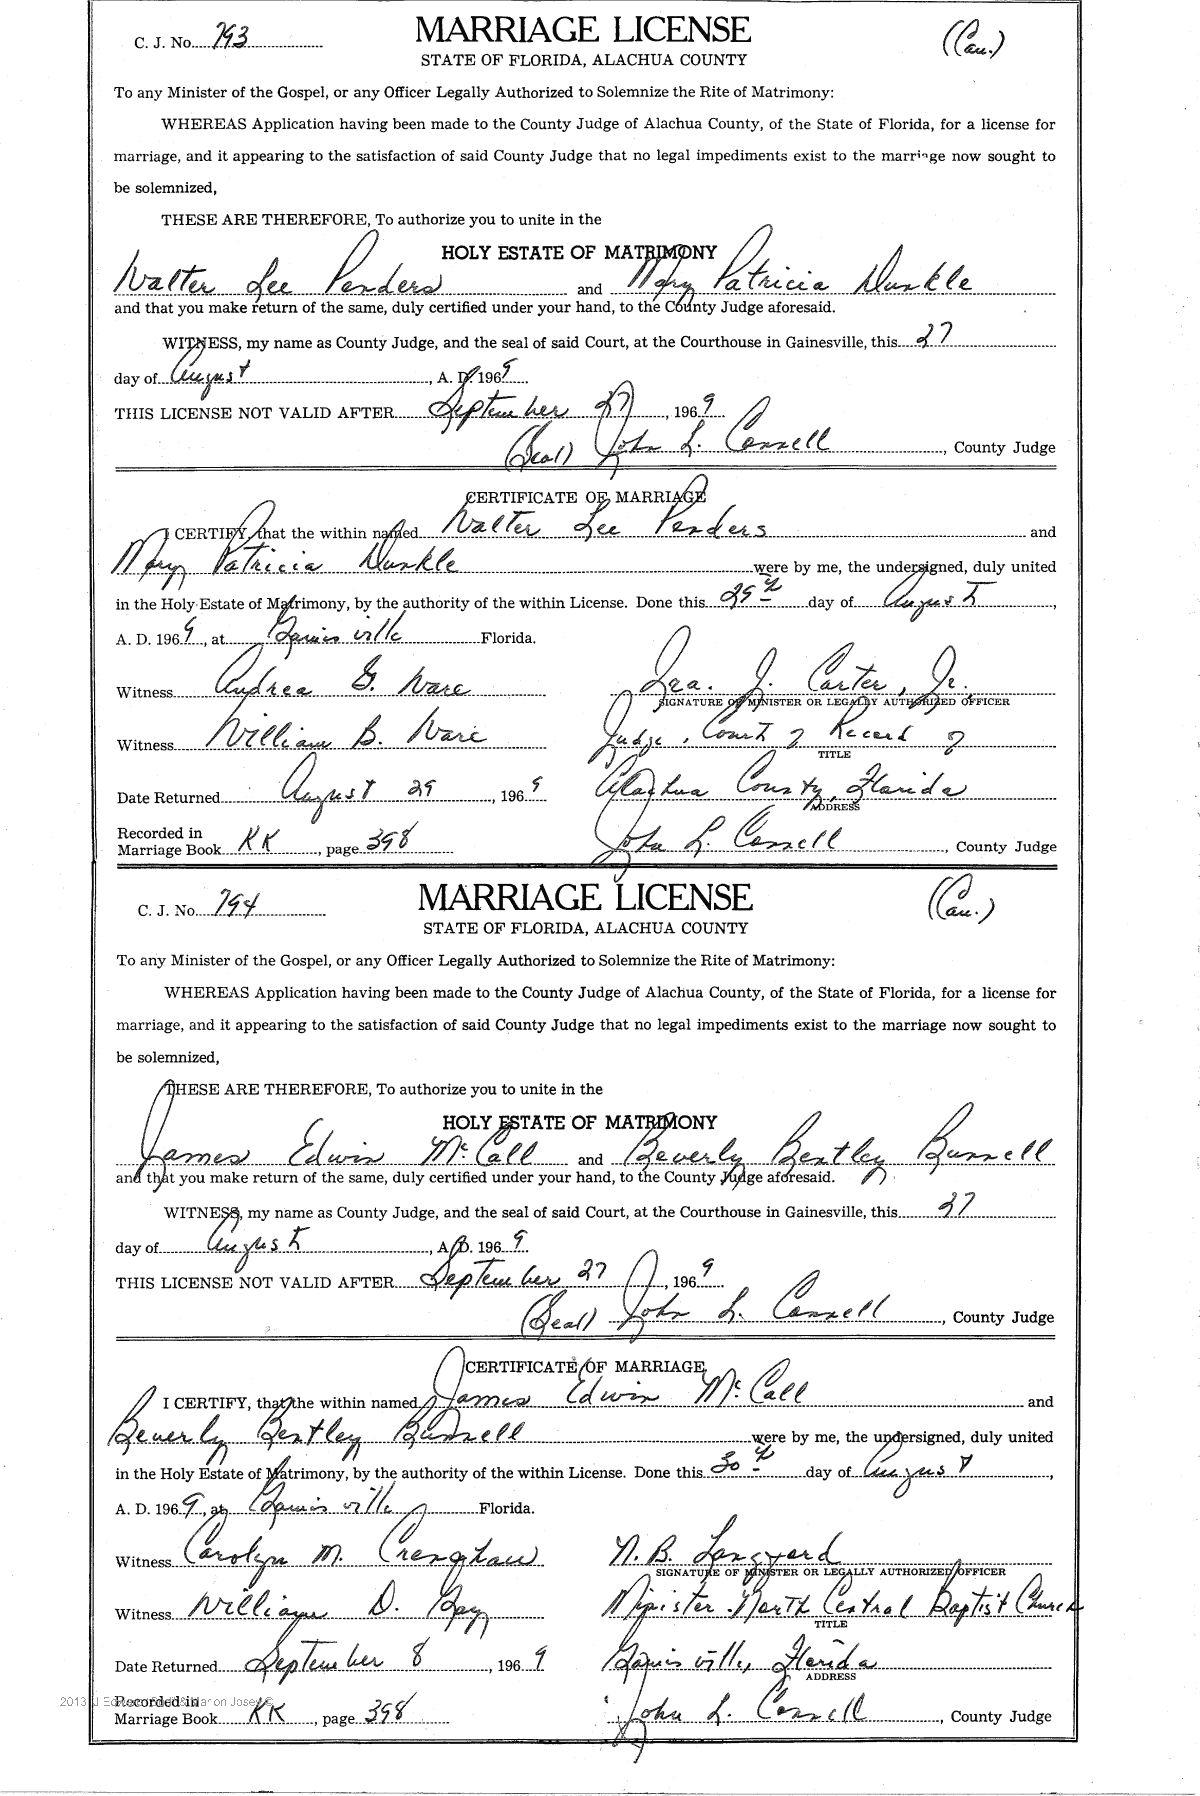 C. J. No. 793 MARRIAGE LICENSE (Cau.)
STATE OF FLORIDA, ALACHUA COUNTY
To any Minister of the Gospel, or any Officer Legally Authorized to Solemnize the Rite of Matrimony:
WHEREAS Application having been made to the County Judge of Alachua County, of the State of Florida, for a license for
marriage, and it appearing to the satisfaction of said County Judge that no legal impediments exist to the marriage now sought to
be solemnized,
THESE ARE THEREFORE, To authorize you to unite in the
HOLY ESTATE OF MATRIMONY
Walter Lee Penders and Mary Patricia Dunkle
and that you make return of the same, duly certified under your hand, to the County Judge aforesaid.
WITNESS, my name as County Judge, and the seal of said Court, at the Courthouse in Gainesville, this 27
day of August, A. D. 1969
THIS LICENSE NOT VALID AFTER September 27, 1969
(Seal) John L. Connell, County Judge
CERTIFICATE OF MARRIAGE
I CERTIFY, that the within named Walter Lee Penders and
Mary Patricia Dunkle were by me, the undersigned, duly united
in the Holy Estate of Matrimony, by the authority of the within License. Done this 29th day of August,
A. D. 1969, at Gainesville Florida.
Witness Andrea G. Ware Geo. J. Carter, Jr.
SIGNATURE OF MINISTER OR LEGALLY AUTHORIZED OFFICER
Witness William B. Ware Judge, Court of Record of
TITLE
Date Returned August 29, 1969 Alachua County, Florida
ADDRESS
Recorded in
Marriage Book KK, page 398 John L. Connell, County Judge
C. J. No. 794 MARRIAGE LICENSE (Cau.)
STATE OF FLORIDA, ALACHUA COUNTY
To any Minister of the Gospel, or any Officer Legally Authorized to Solemnize the Rite of Matrimony:
WHEREAS Application having been made to the County Judge of Alachua County, of the State of Florida, for a license for
marriage, and it appearing to the satisfaction of said County Judge that no legal impediments exist to the marriage now sought to
be solemnized,
THESE ARE THEREFORE, To authorize you to unite in the
HOLY ESTATE OF MATRIMONY
James Edwin McCall and Beverly Bentley Bunnell
and that you make return of the same, duly certified under your hand, to the County Judge aforesaid.
WITNESS, my name as County Judge, and the seal of said Court, at the Courthouse in Gainesville, this 27
day of August, A. D. 1969
THIS LICENSE NOT VALID AFTER September 27, 1969
(Seal) John L. Connell, County Judge
CERTIFICATE OF MARRIAGE
I CERTIFY, that the within named James Edwin McCall and
Beverly Bentley Bunnell were by me, the undersigned, duly united
in the Holy Estate of Matrimony, by the authority of the within License. Done this 30th day of August,
A. D. 1969, at Gainesville Florida.
Witness Carolyn M. N. B. Langford
SIGNATURE OF MINISTER OR LEGALLY AUTHORIZED OFFICER
Witness William D. Minister North Central Baptist Church
TITLE
Date Returned September 8, 1969 Gainesville, Florida
ADDRESS
2013 J
Recorded in
Marriage Book KK, page 398 John L. Connell, County Judge